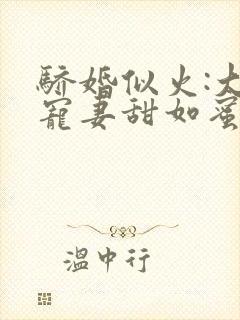 骄婚似火:大
宠妻甜如蜜
温中行